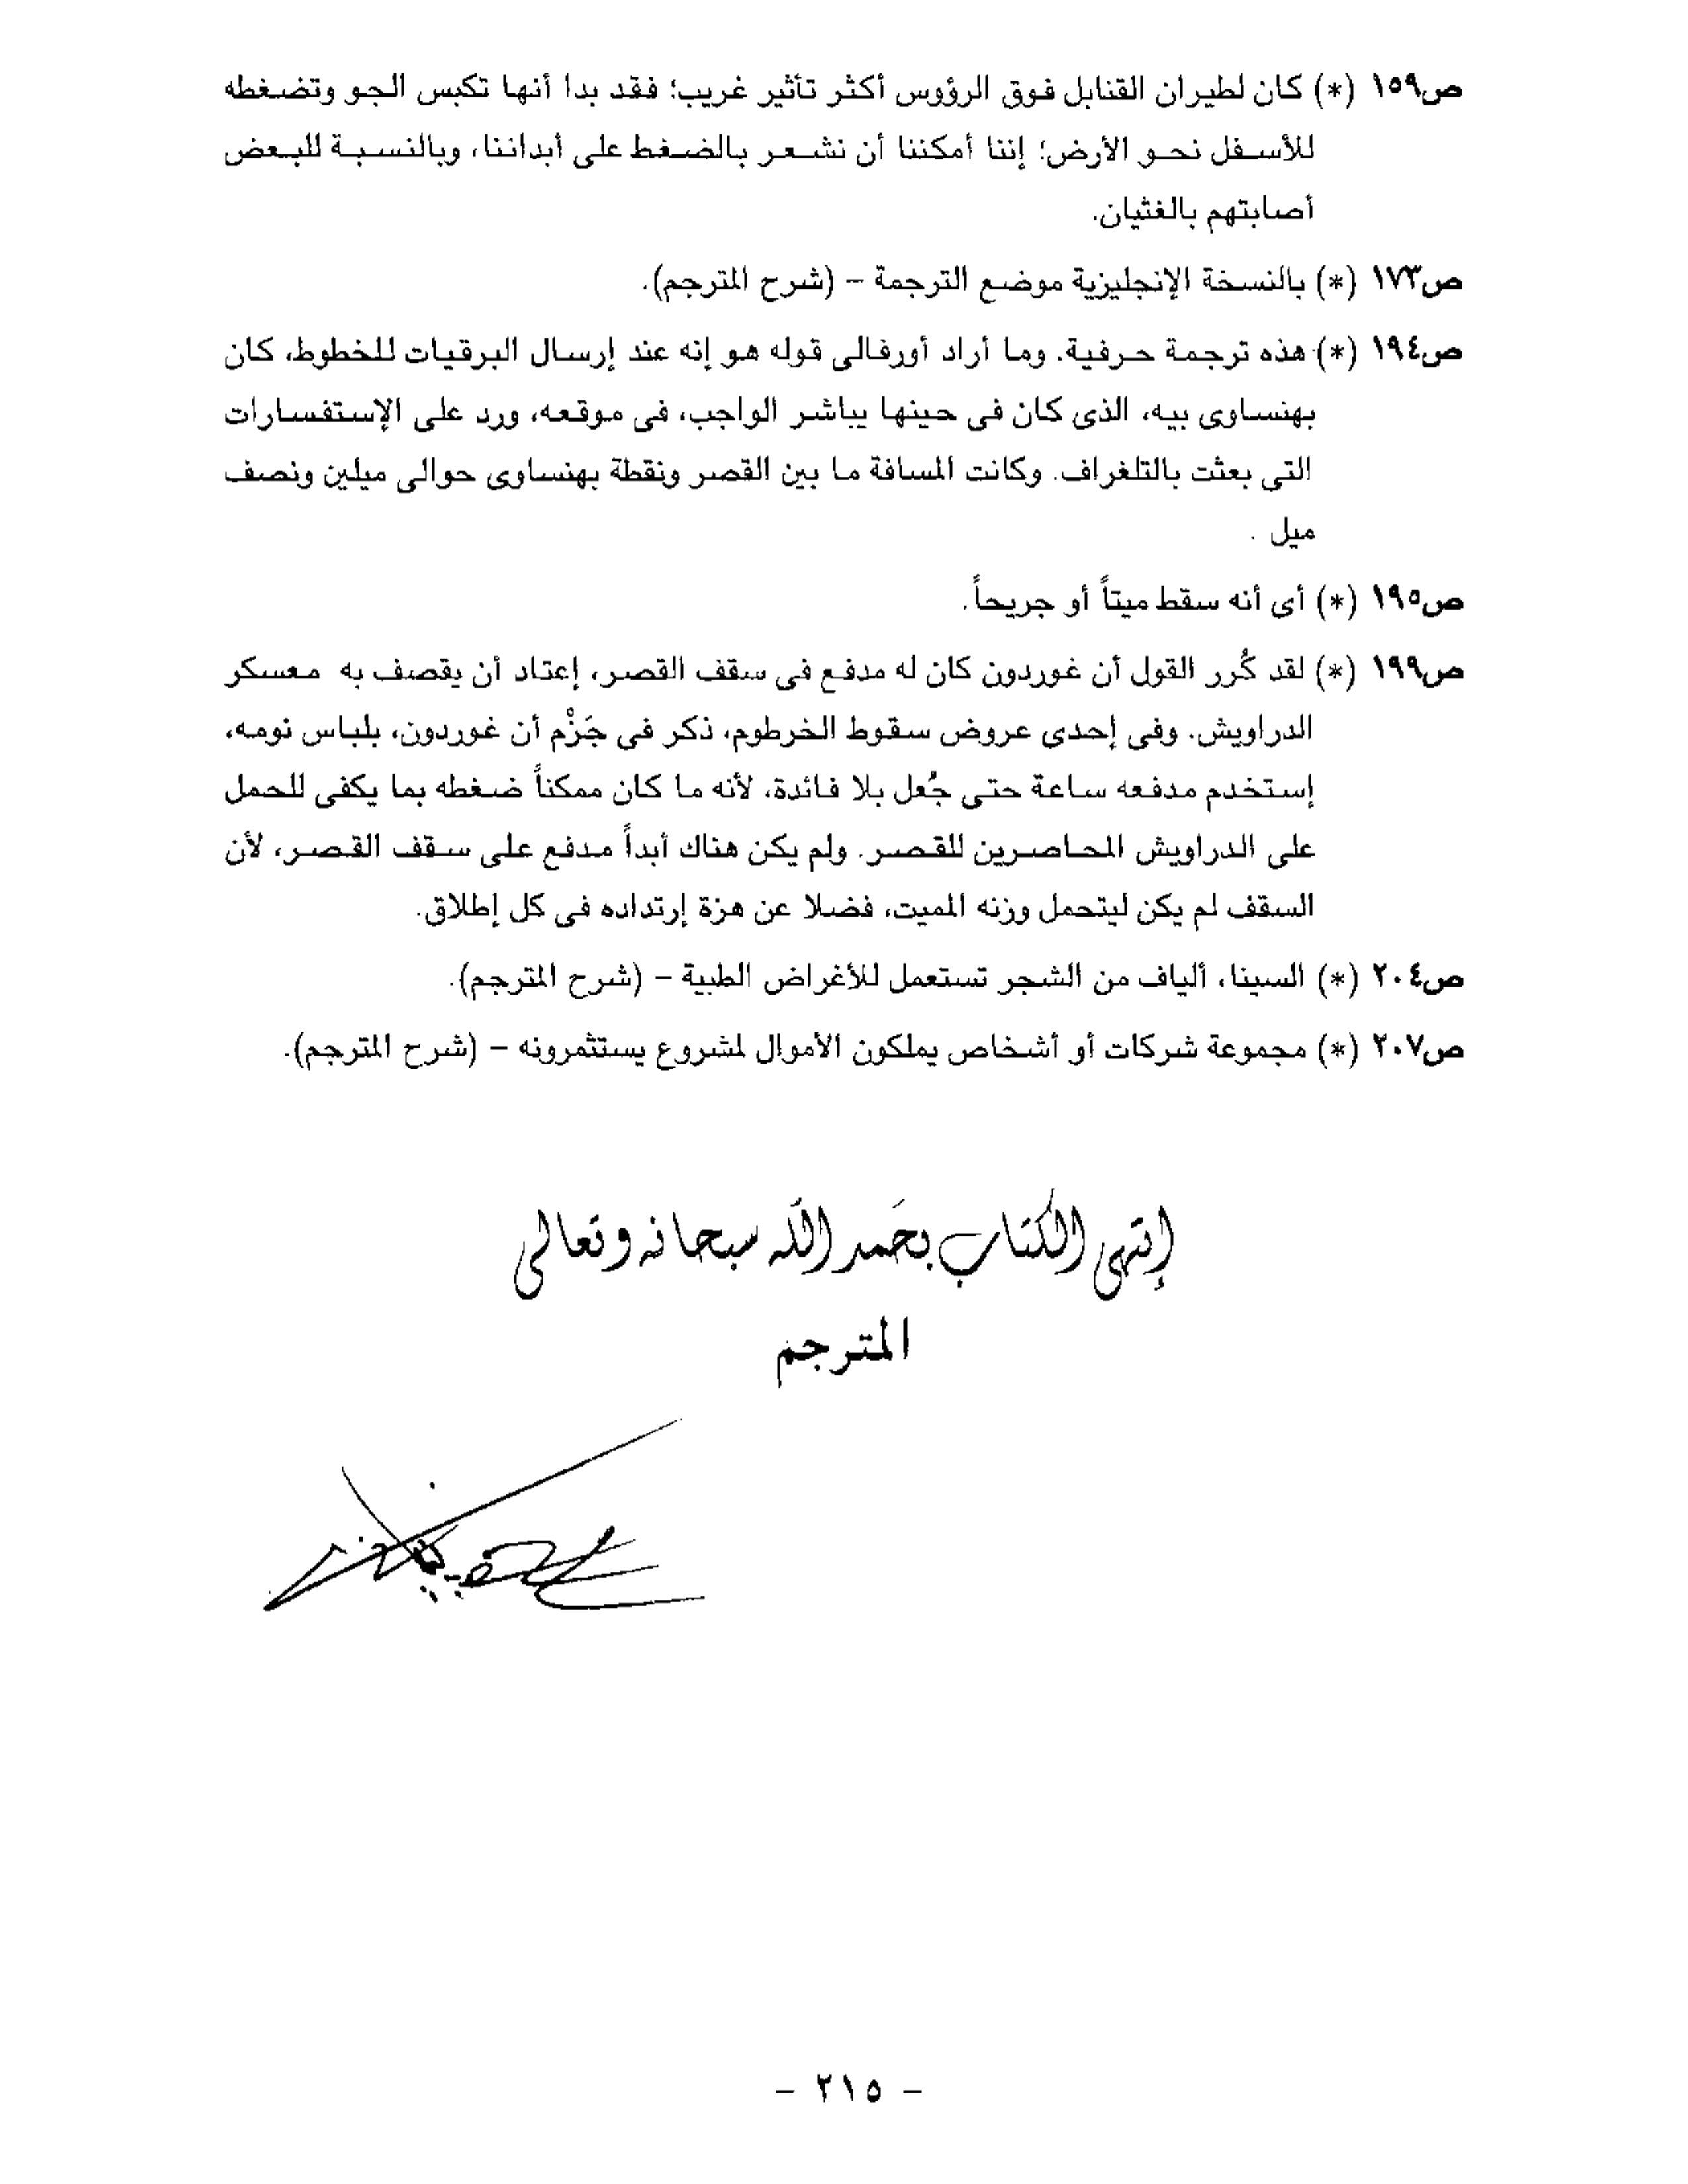 ص١٥٩ (*) كان لطيران القنابل فوق الرؤوس أكثر تأثير غريب؛ فقد بدا أنها تكبس الجو وتضغطه
للأسفل نحو الأرض؛ إننا أمكننا أن نشعر بالضغط على أبداننا، وبالنسبة للبعض
أصابتهم بالغثيان.
ص١٧٣ (*) بالنسخة الإنجليزية موضع الترجمة – (شرح المترجم).
ص١٩٤ (*) هذه ترجمة حرفية. وما أراد أورفالى قوله هو إنه عند إرسال البرقيات للخطوط، كان
بهنساوى بيه، الذى كان فى حينها يباشر الواجب، فى موقعه، ورد على الإستفسارات
التى بعثت بالتلغراف. وكانت المسافة ما بين القصر ونقطة بهنساوى حوالى ميلين ونصف
ميل .
ص١٩٥ (*) أى أنه سقط ميتاً أو جريحاً.
ص١٩٩ (*) لقد كُرر القول أن غوردون كان له مدفع فى سقف القصر، إعتاد أن يقصف به معسكر
الدراويش. وفى إحدى عروض سقوط الخرطوم، ذكر فى جَزْم أن غوردون، بلباس نومه،
إستخدم مدفعه ساعة حتى جُعل بلا فائدة، لأنه ما كان ممكناً ضغطه بما يكفى للحمل
على الدراويش المحاصرين للقصر. ولم يكن هناك أبداً مدفع على سقف القصر، لأن
السقف لم يكن ليتحمل وزنه الميت، فضلا عن هزة إرتداده فى كل إطلاق.
ص٢٠٤ (*) السينا، ألياف من الشجر تستعمل للأغراض الطبية – (شرح المترجم).
ص٢٠٧ (*) مجموعة شركات أو أشخاص يملكون الأموال لمشروع يستثمرونه – (شرح المترجم).
إنتهى الكتاب بحَمد الله سبحانه وتعالى
المترجم
– ٢١٥ –